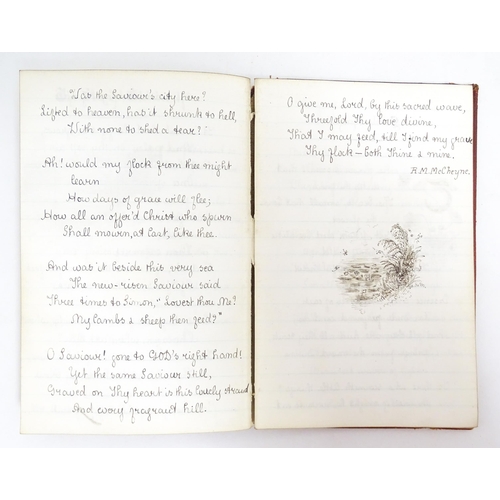 Was the Saviour's city here?
Lifted to heaven, has it shrunk to hell,
With none to shed a tear?
Ah! would my flock from thee might
learn
How days of grace will flee;
How all an offer'd Christ who spurn
Shall mourn, at last, like thee.
And was it beside this very sea
The new-risen Saviour said
Three times to Simon, "Lovest thou Me?
My lambs & sheep then feed?"
O Saviour! gone to GOD's right hand!
Yet the same Saviour still,
Graved on Thy heart is this lovely strand
And every fragrant hill.
O give me, Lord, by this sacred wave,
Threefold Thy love divine,
That I may feed, till I find my grave,
Thy flock - both Thine & mine.
R.M. McCheyne.